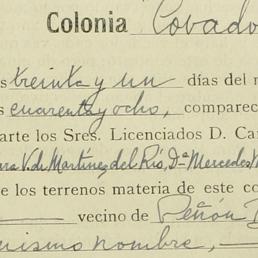 Colonia Covado
s treinta y un días del m
s cuarenta y ocho, comparece
arte los Sres. Licenciados D. Ca
ara V. de Martínez del Río, Dª Mercedes M
e los terrenos materia de este co
vecino de Peñón
mismo nombre,